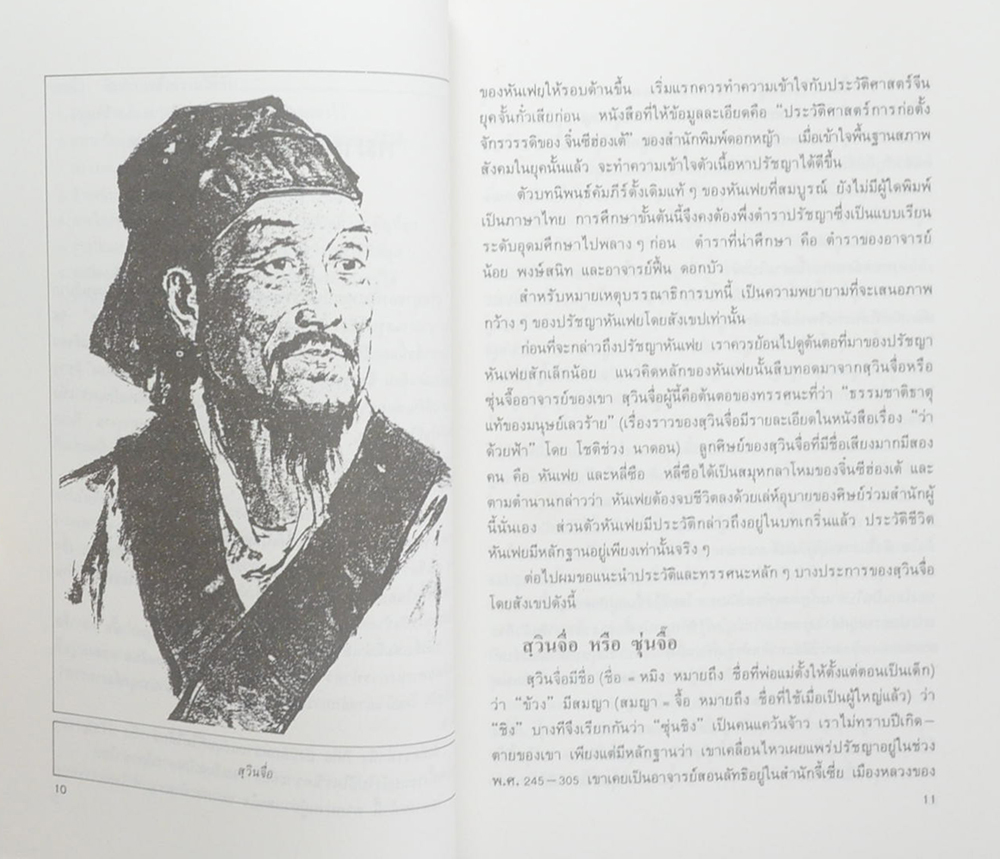 สุวินจื่อ
10
ของหันเฟยให้รอบด้านขึ้น เริ่มแรกควรทำความเข้าใจกับประวัติศาสตร์จีน
ยุคจั้นกั๋วเสียก่อน หนังสือที่ให้ข้อมูลละเอียดคือ "ประวัติศาสตร์การก่อตั้ง
จักรวรรดิของ จิ๋นซีฮ่องเต้" ของสำนักพิมพ์ดอกหญ้า เมื่อเข้าใจพื้นฐานสภาพ
สังคมในยุคนั้นแล้ว จะทำความเข้าใจตัวเนื้อหาปรัชญาได้ดีขึ้น
ตัวบทนิพนธ์คัมภีร์ดั้งเดิมแท้ ๆ ของหันเฟยที่สมบูรณ์ ยังไม่มีผู้ใดพิมพ์
เป็นภาษาไทย การศึกษาขั้นต้นนี้จึงคงต้องพึ่งตำราปรัชญาซึ่งเป็นแบบเรียน
ระดับอุดมศึกษาไปพลาง ๆ ก่อน ตำราที่น่าศึกษา คือ ตำราของอาจารย์
น้อย พงษ์สนิท และอาจารย์ฟื้น ดอกบัว
สำหรับหมายเหตุบรรณาธิการบทนี้ เป็นความพยายามที่จะเสนอภาพ
กว้าง ๆ ของปรัชญาหันเฟยโดยสังเขปเท่านั้น
ก่อนที่จะกล่าวถึงปรัชญาหันเฟย เราควรย้อนไปดูต้นตอที่มาของปรัชญา
หันเฟยสักเล็กน้อย แนวคิดหลักของหันเฟยนั้นสืบทอดมาจากสุวินจื่อหรือ
ซุ่นจื๊ออาจารย์ของเขา สุวินจื่อผู้นี้คือต้นตอของทรรศนะที่ว่า "ธรรมชาติธาตุ
แท้ของมนุษย์เลวร้าย" (เรื่องราวของสุวินจื่อมีรายละเอียดในหนังสือเรื่อง "ว่า
ด้วยฟ้า" โดย โชติช่วง นาดอน) ลูกศิษย์ของสุวินจื่อที่มีชื่อเสียงมากมีสอง
คน คือ หันเฟย และหลี่ซือ หลี่ซือได้เป็นสมุหกลาโหมของจิ๋นซีฮ่องเต้ และ
ตามตำนานกล่าวว่า หันเฟยต้องจบชีวิตลงด้วยเล่ห์อุบายของศิษย์ร่วมสำนักผู้
นี้นั่นเอง ส่วนตัวหันเฟยมีประวัติกล่าวถึงอยู่ในบทเกริ่นแล้ว ประวัติชีวิต
หันเฟยมีหลักฐานอยู่เพียงเท่านั้นจริง ๆ
ต่อไปผมขอแนะนำประวัติและทรรศนะหลัก ๆ บางประการของสุวินจื่อ
โดยสังเขปดังนี้
สุวินจื่อ หรือ ซุ่นจื๊อ
สุวินจื่อมีชื่อ (ชื่อ = หมิง หมายถึง ชื่อที่พ่อแม่ตั้งให้ตั้งแต่ตอนเป็นเด็ก)
ว่า "ข้วง" มีสมญา (สมญา = จื้อ หมายถึง ชื่อที่ใช้เมื่อเป็นผู้ใหญ่แล้ว) ว่า
"ชิง" บางทีจึงเรียกกันว่า "ซุ่นชิง" เป็นคนแคว้นจ้าว เราไม่ทราบปีเกิด—
ตายของเขา เพียงแต่มีหลักฐานว่า เขาเคลื่อนไหวเผยแพร่ปรัชญาอยู่ในช่วง
พ.ศ. 245—305 เขาเคยเป็นอาจารย์สอนลัทธิอยู่ในสำนักจี้เซี่ย เมืองหลวงของ
11